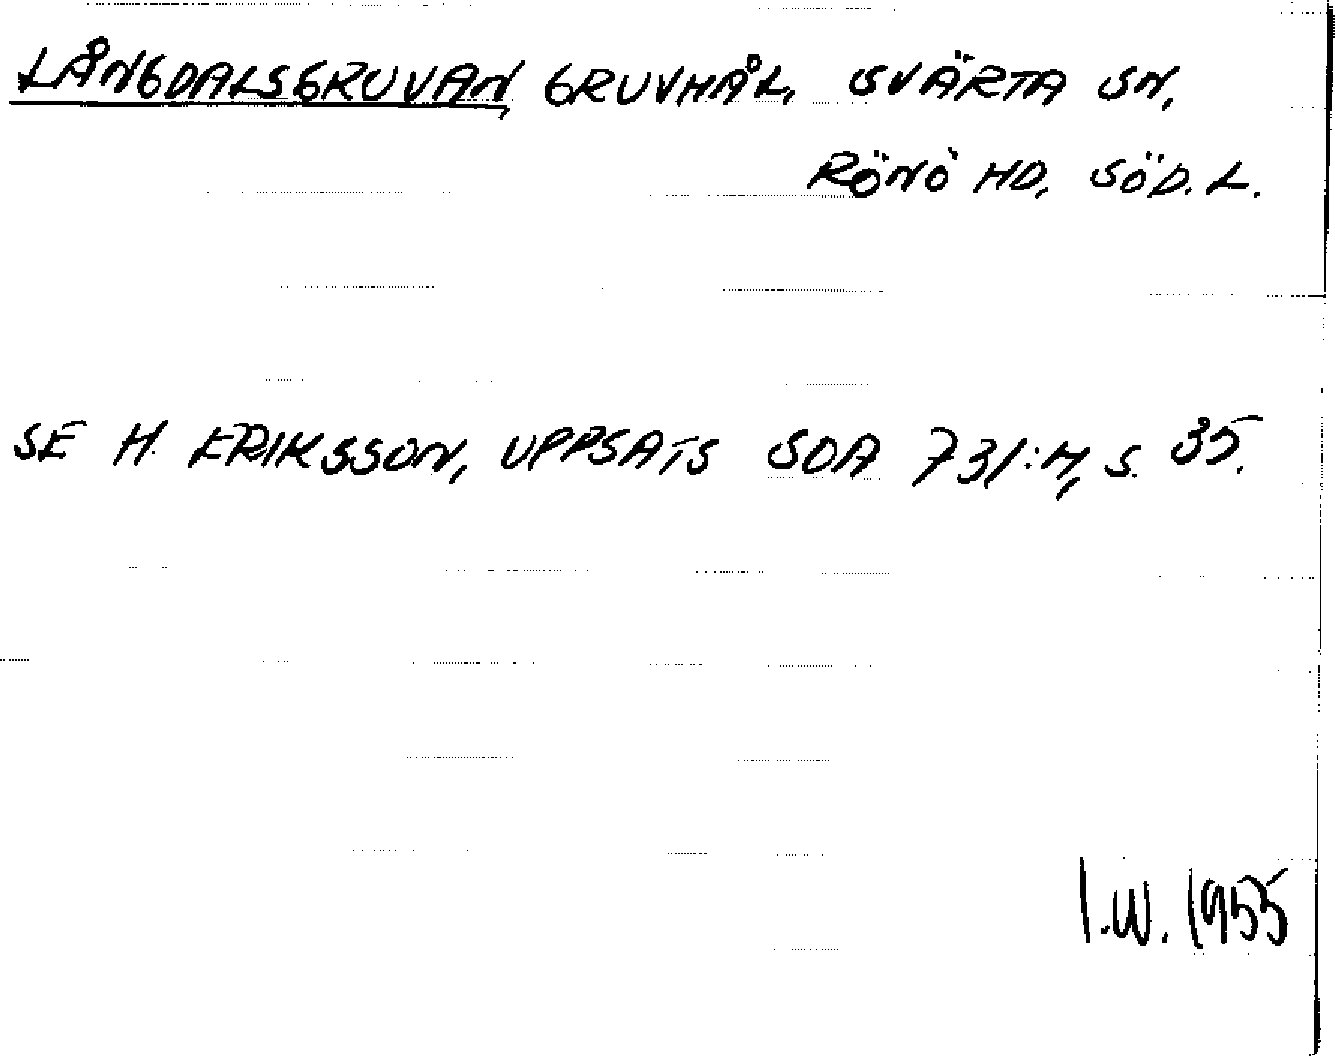 LÅNGDALSGRUVAN, GRUVHÅL, SVÄRTA SN,
RÖNÖ HD, SÖD. L.
SE H. ERIKSSON, UPPSATS SOA 731:H, S. 35.
I.W. 1955